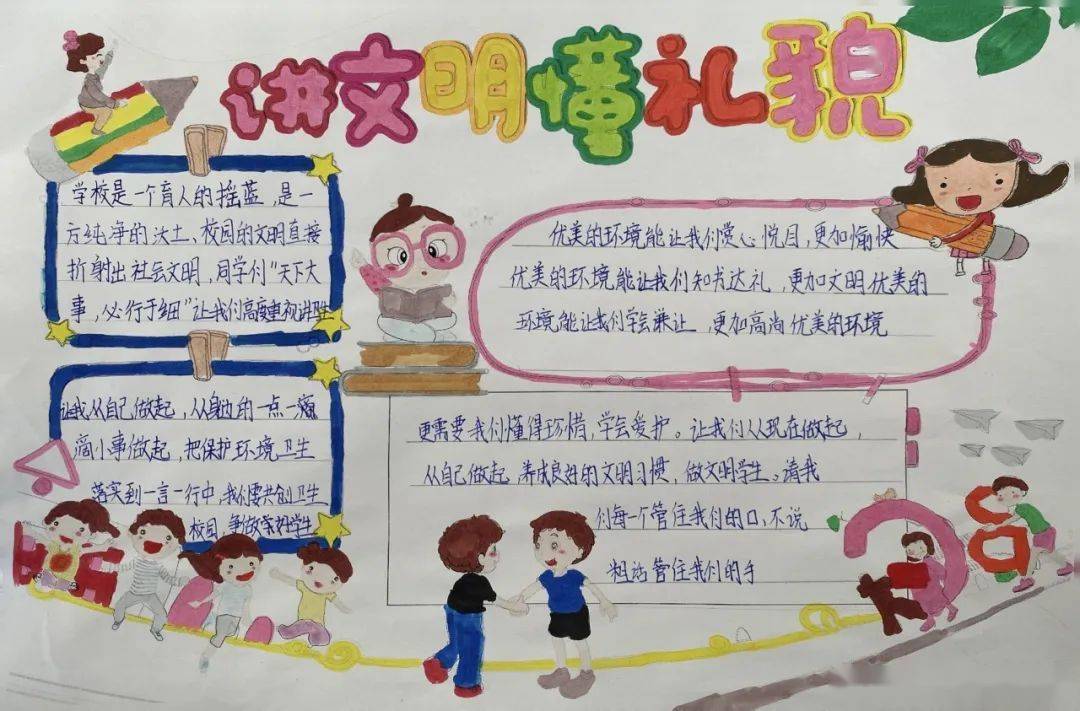 讲文明懂礼貌
学校是一个育人的摇篮，是一
方纯净的沃土、校园的文明直接
折射出社会文明，同学们“天下大
事，必行于细”让我们高度重视讲卫生
优美的环境能让我们赏心悦目，更加愉快
优美的环境能让我们知书达礼，更加文明优美的
环境能让我们学会谦让，更加高尚优美的环境
让我从自己做起，从身边的一点一滴
滴小事做起，把保护环境卫生
落实到一言一行中，我们要共创卫生
校园，争做学生
更需要我们懂得珍惜，学会爱护。让我们从现在做起，
从自己做起，养成良好的文明习惯，做文明学生。请我
们每一个管住我们的口，不说
粗话管住我们的手